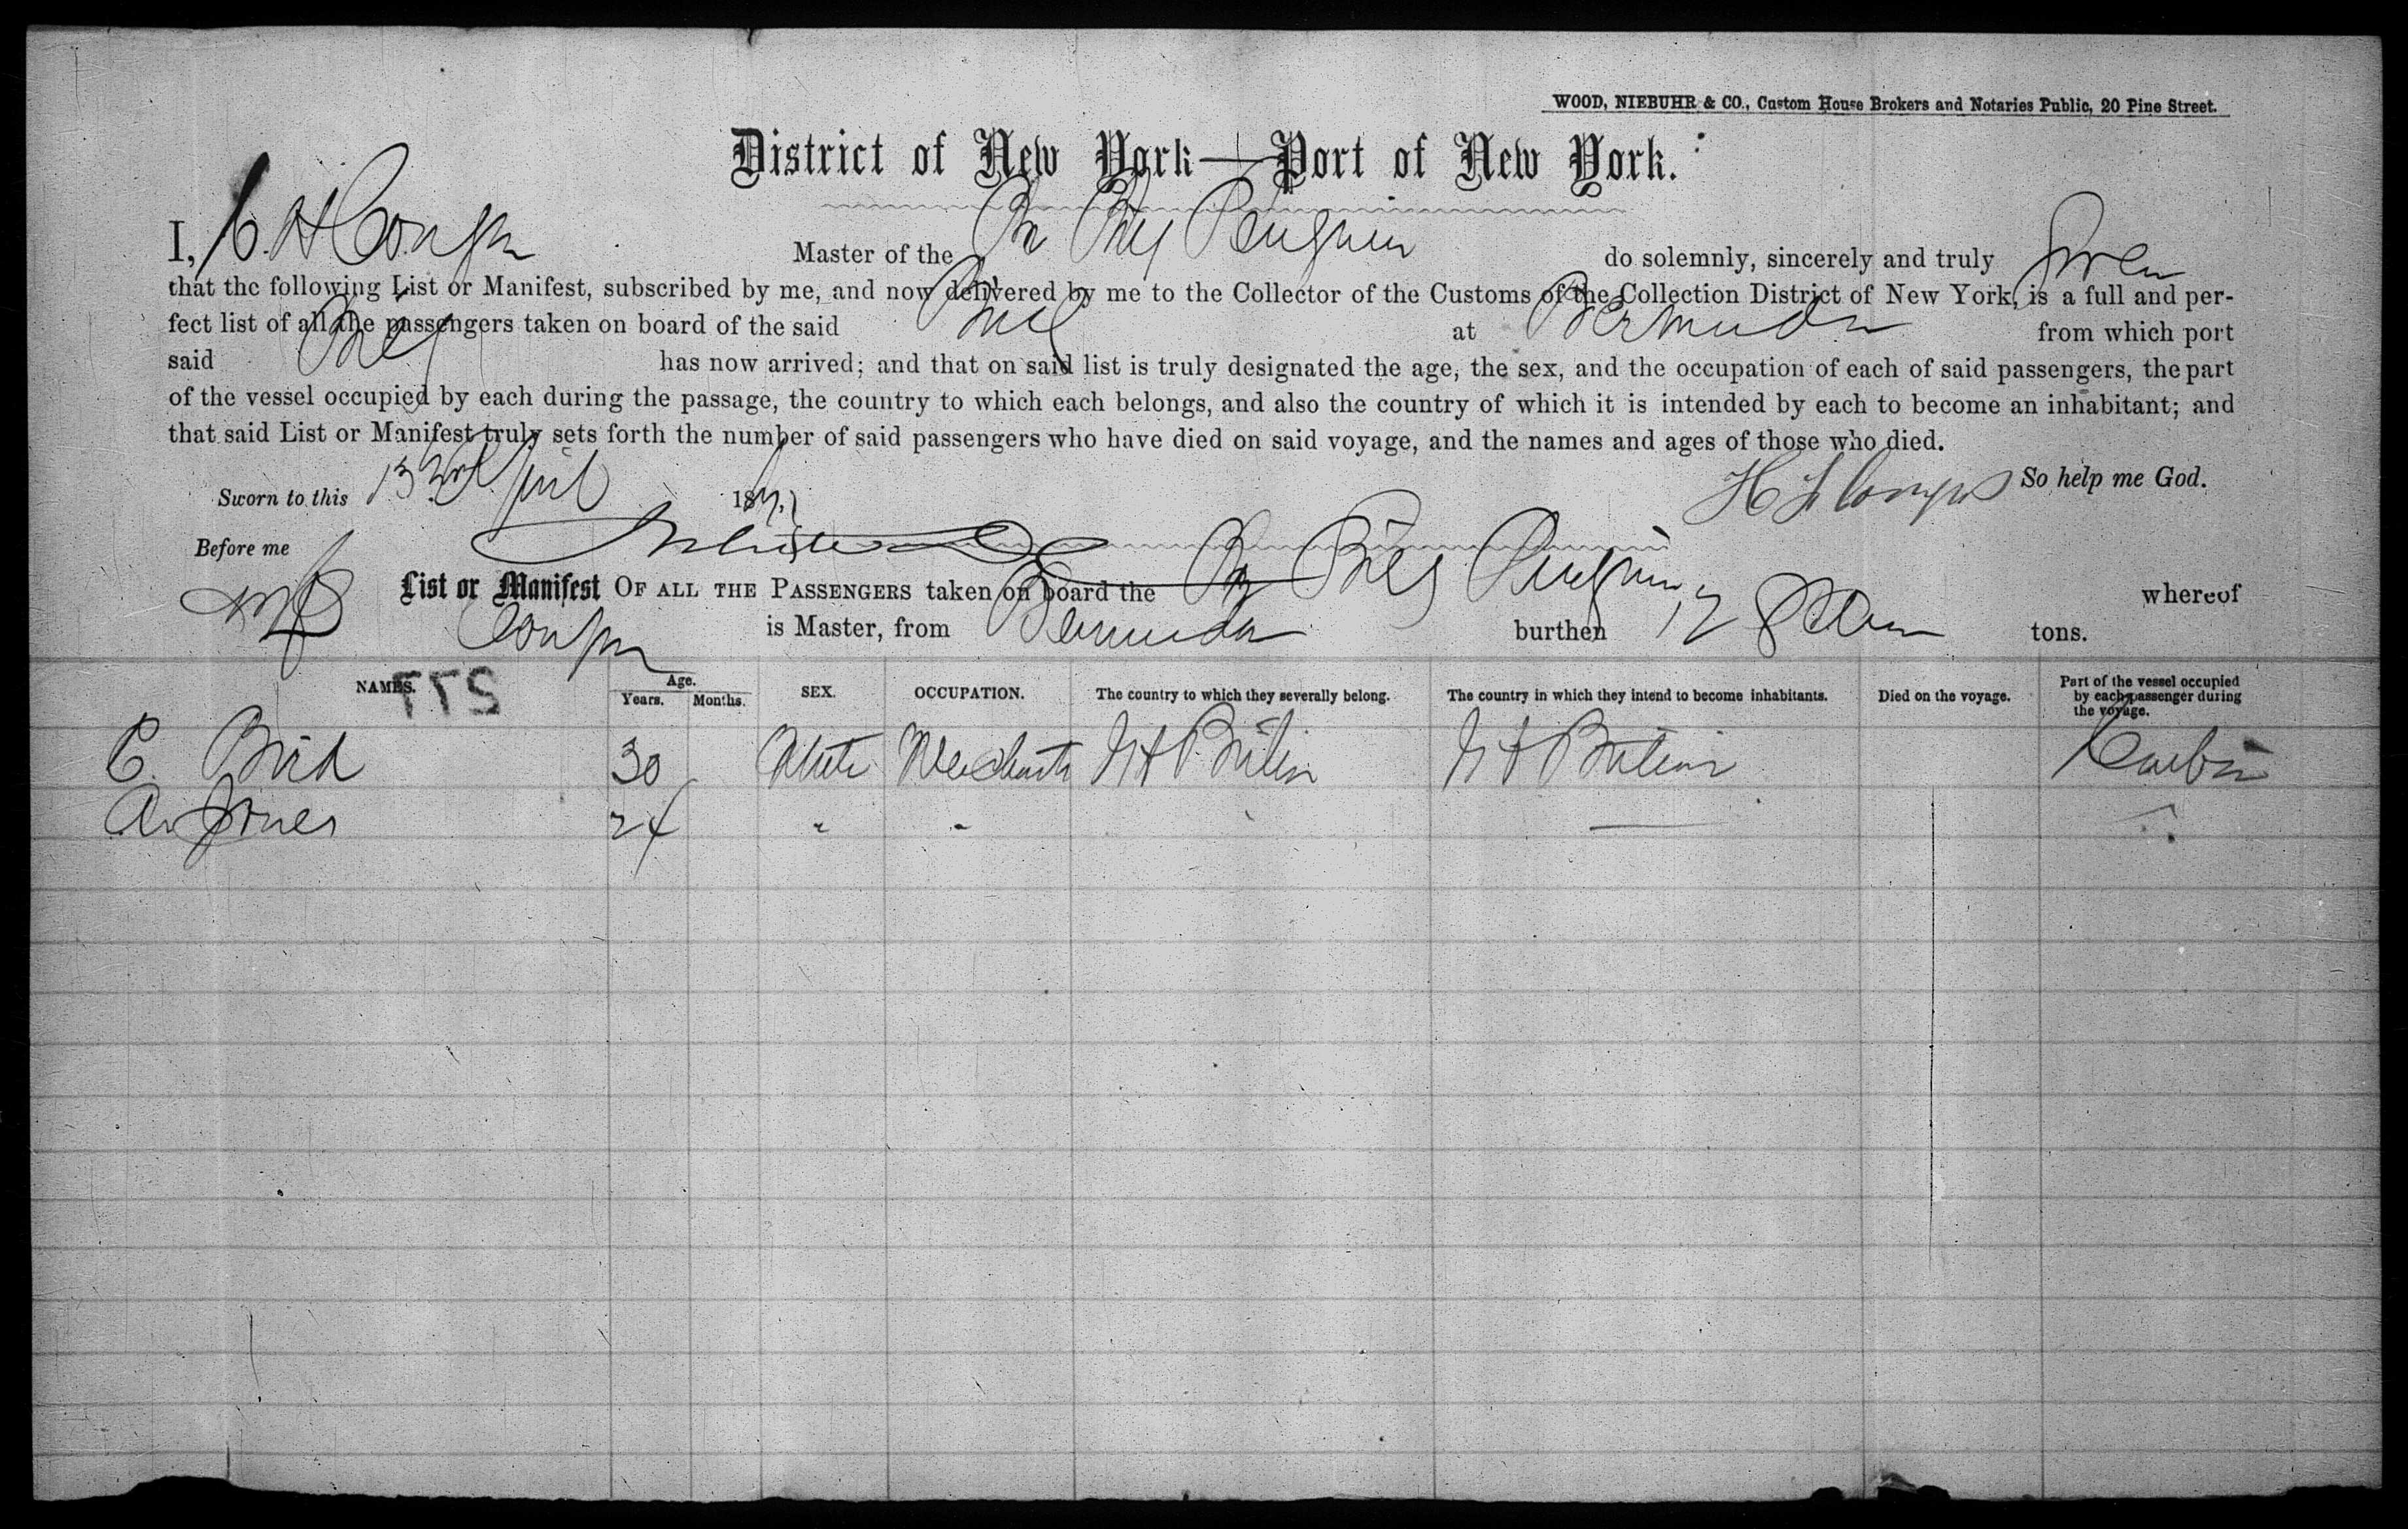 WOOD, NIEBUHR & CO., Custom House Brokers and Notaries Public, 20 Pine Street.
District of New York—Port of New York.
I, Master of the Br Brig Penguin do solemnly, sincerely and truly swear
that the following List or Manifest, subscribed by me, and now delivered by me to the Collector of the Customs of the Collection District of New York, is a full and per-
fect list of all the passengers taken on board of the said Brig at Bermuda from which port
said Brig has now arrived; and that on said list is truly designated the age, the sex, and the occupation of each of said passengers, the part
of the vessel occupied by each during the passage, the country to which each belongs, and also the country of which it is intended by each to become an inhabitant; and
that said List or Manifest truly sets forth the number of said passengers who have died on said voyage, and the names and ages of those who died.
So help me God.
Sworn to this 187
Before me
List or Manifest OF ALL THE PASSENGERS taken on board the Br Brig Penguin whereof
is Master, from Bermuda burthen tons.
277
NAMES. Age. Years. Months. SEX. OCCUPATION. The country to which they severally belong. The country in which they intend to become inhabitants. Died on the voyage. Part of the vessel occupied by each passenger during the voyage.
C. Bird 30 Gt Britin Gt Britain Cabin
A. Jones 24 " "